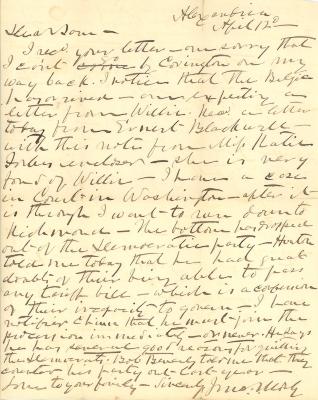 Alexandria
April 12
Dear Dom -
I rec'd your letter - am sorry that
I can't by Covington on my
way back. I notice that the Belgic
has arrived - am expecting a
letter from Willie. Rec'd a letter
today from Ernest Blackwell
with this note from Miss Katie
Forbes enclosed - she is very
fond of Willie - I have a case
in Court in Washington - after it
is through I want to run down to
Richmond - The bottom has dropped
out of the Democratic party -
told me today that he had great
doubts of their being able to pass
any tariff bill - which is a confession
of their incapacity to govern - I have
notified that he must join the
procession immediately - or never. He says
he has several good reasons for quitting
the Democrats. Bob Beverly told me that they
his party out last year -
Love to your family - Sincerely Jno. S. Mosby